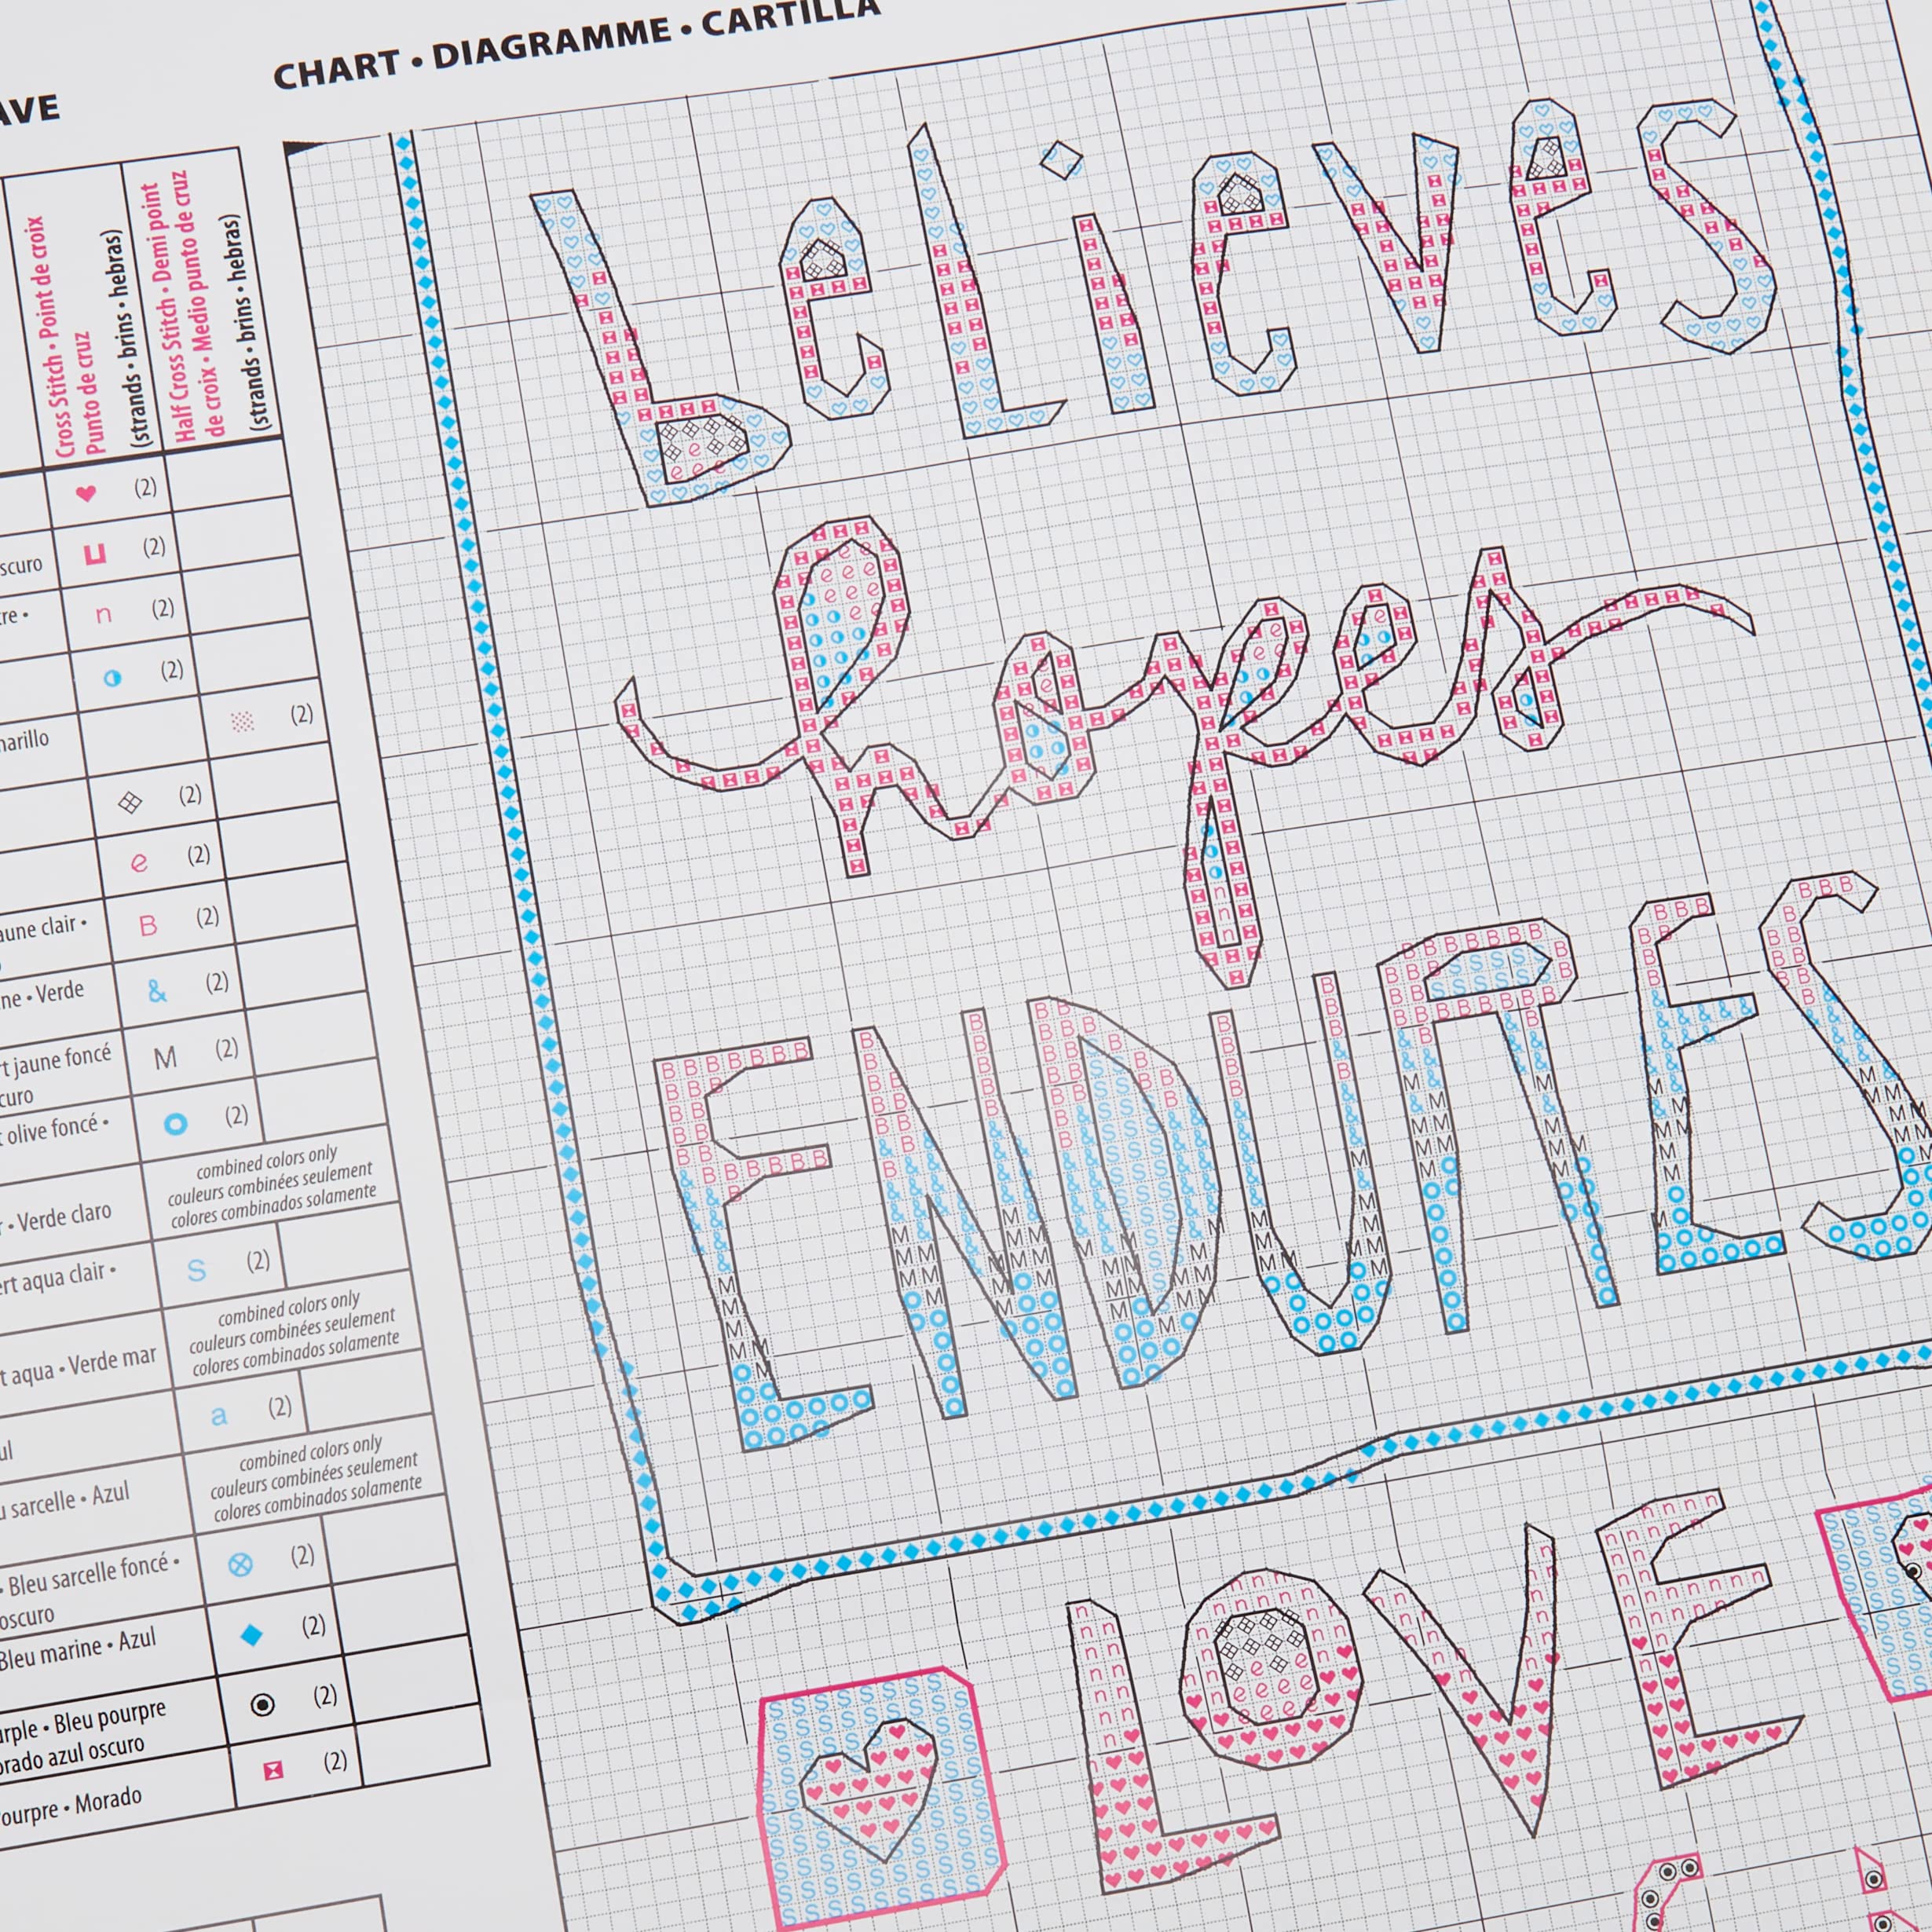 CHART • DIAGRAMME • CARTILLA
AVE
Cross Stitch • Point de croix
Punto de cruz
(strands • brins • hebras)
Half Cross Stitch • Demi point
de croix • Medio punto de cruz
(strands • brins • hebras)
(2)
scuro
(2)
re •
n (2)
(2)
arillo
(2)
(2)
e (2)
aune clair •
B (2)
ne • Verde
& (2)
t jaune foncé
curo
M (2)
t olive foncé •
(2)
combined colors only
couleurs combinées seulement
colores combinados solamente
r • Verde claro
ert aqua clair •
S (2)
combined colors only
couleurs combinées seulement
colores combinados solamente
t aqua • Verde mar
a (2)
ul
combined colors only
couleurs combinées seulement
colores combinados solamente
u sarcelle • Azul
• Bleu sarcelle foncé •
oscuro
(2)
Bleu marine • Azul
(2)
urple • Bleu pourpre
orado azul oscuro
(2)
ourpre • Morado
(2)
beLieves
hopes
ENDURES
LOVE